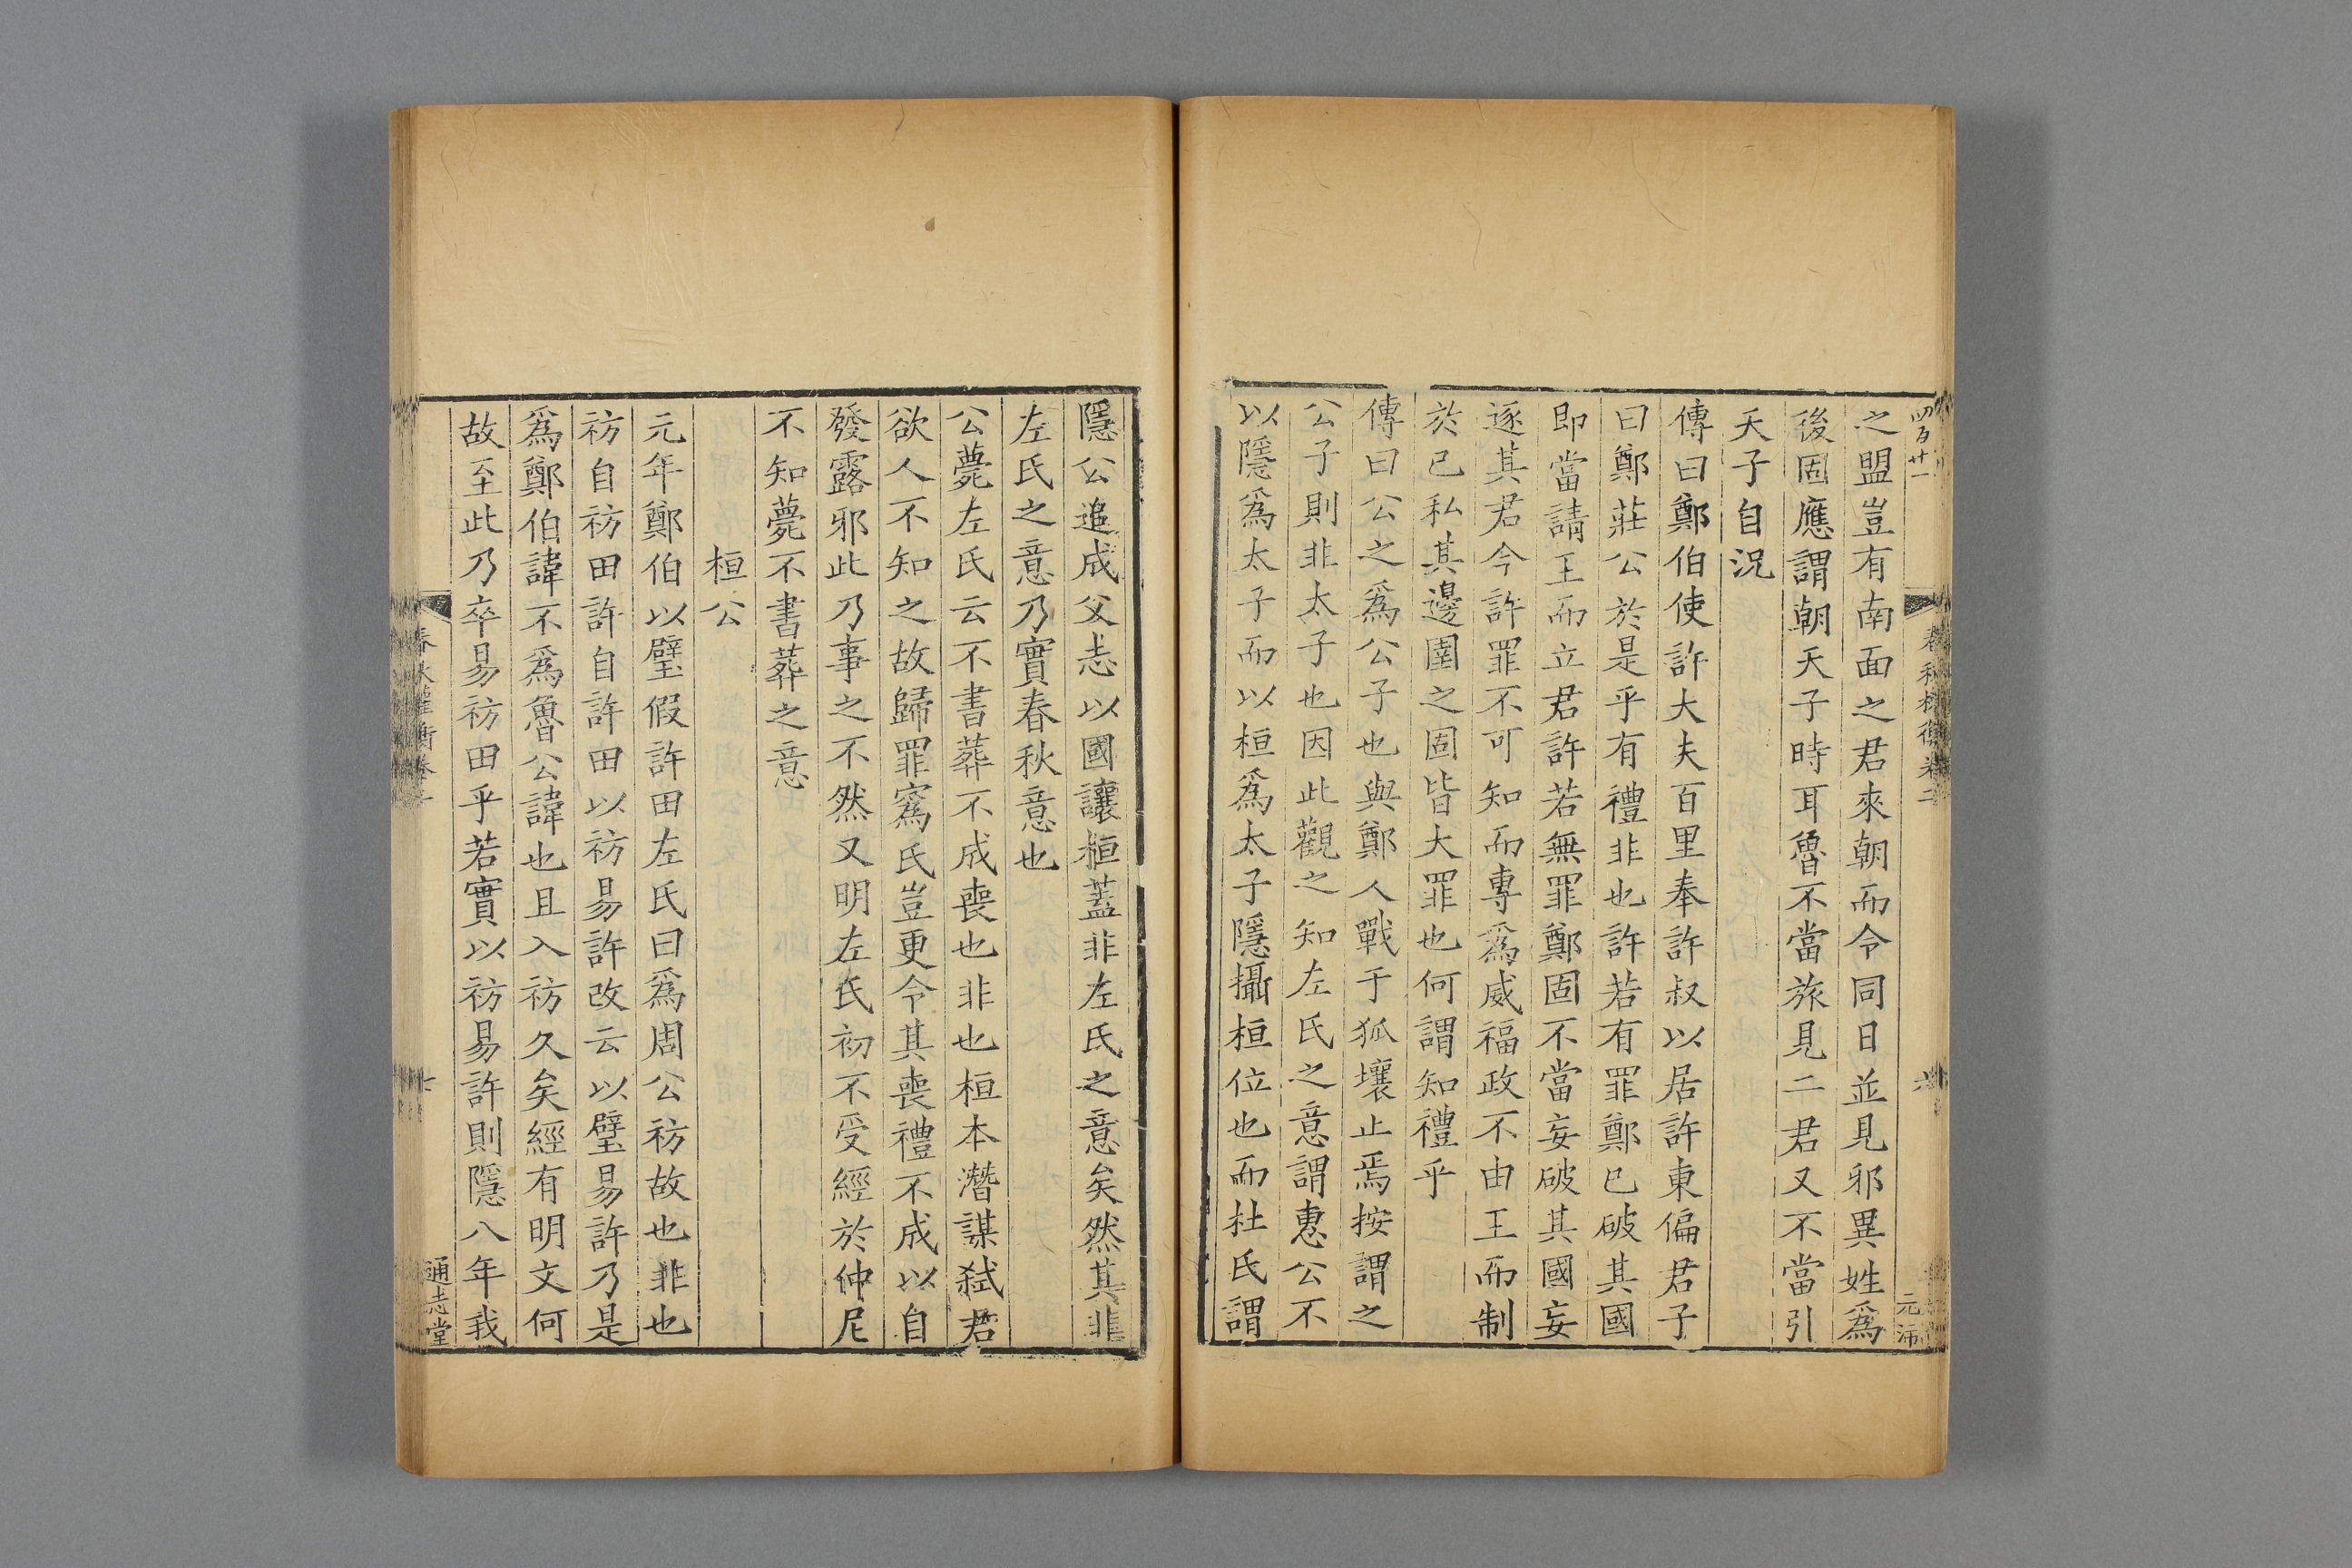 四百廿一
春秋權衡卷二
六
之盟豈有南面之君來朝而令同日並見邪異姓爲
後固應謂朝天子時耳魯不當旅見二君又不當引
天子自況
傳曰鄭伯使許大夫百里奉許叔以居許東偏君子
曰鄭莊公於是乎有禮非也許若有罪鄭已破其國
即當請王而立君許若無罪鄭固不當妄破其國妄
逐其君今許罪不可知而專爲威福政不由王而制
於已私其邊圉之固皆大罪也何謂知禮乎
傳曰公之爲公子也與鄭人戰于狐壤止焉按謂之
公子則非太子也因此觀之知左氏之意謂惠公不
以隱爲太子而以桓爲太子隱攝桓位也而杜氏謂
隱公追成父志以國讓桓蓋非左氏之意矣然其非
左氏之意乃實春秋意也
公薨左氏云不書葬不成喪也非也桓本潛謀弑君
欲人不知之故歸罪寪氏豈更令其喪禮不成以自
發露邪此乃事之不然又明左氏初不受經於仲尼
不知薨不書葬之意
桓公
元年鄭伯以璧假許田左氏曰爲周公祊故也非也
祊自祊田許自許田以祊易許改云以璧易許乃是
爲鄭伯諱不爲魯公諱也且入祊久矣經有明文何
故至此乃卒易祊田乎若實以祊易許則隱八年我
春秋權衡卷二
七
通志堂